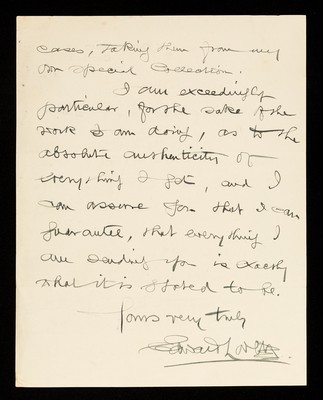 cases, taking them from my
own special Collection.
I am exceedingly
particular, for the sake of the
work I am doing, as to the
absolute authenticity of
everything I get, and I
can assure you that I can
guarantee, that everything I
am sending you is exactly
what it is stated to be.
Yours very truly
Edward Lovett